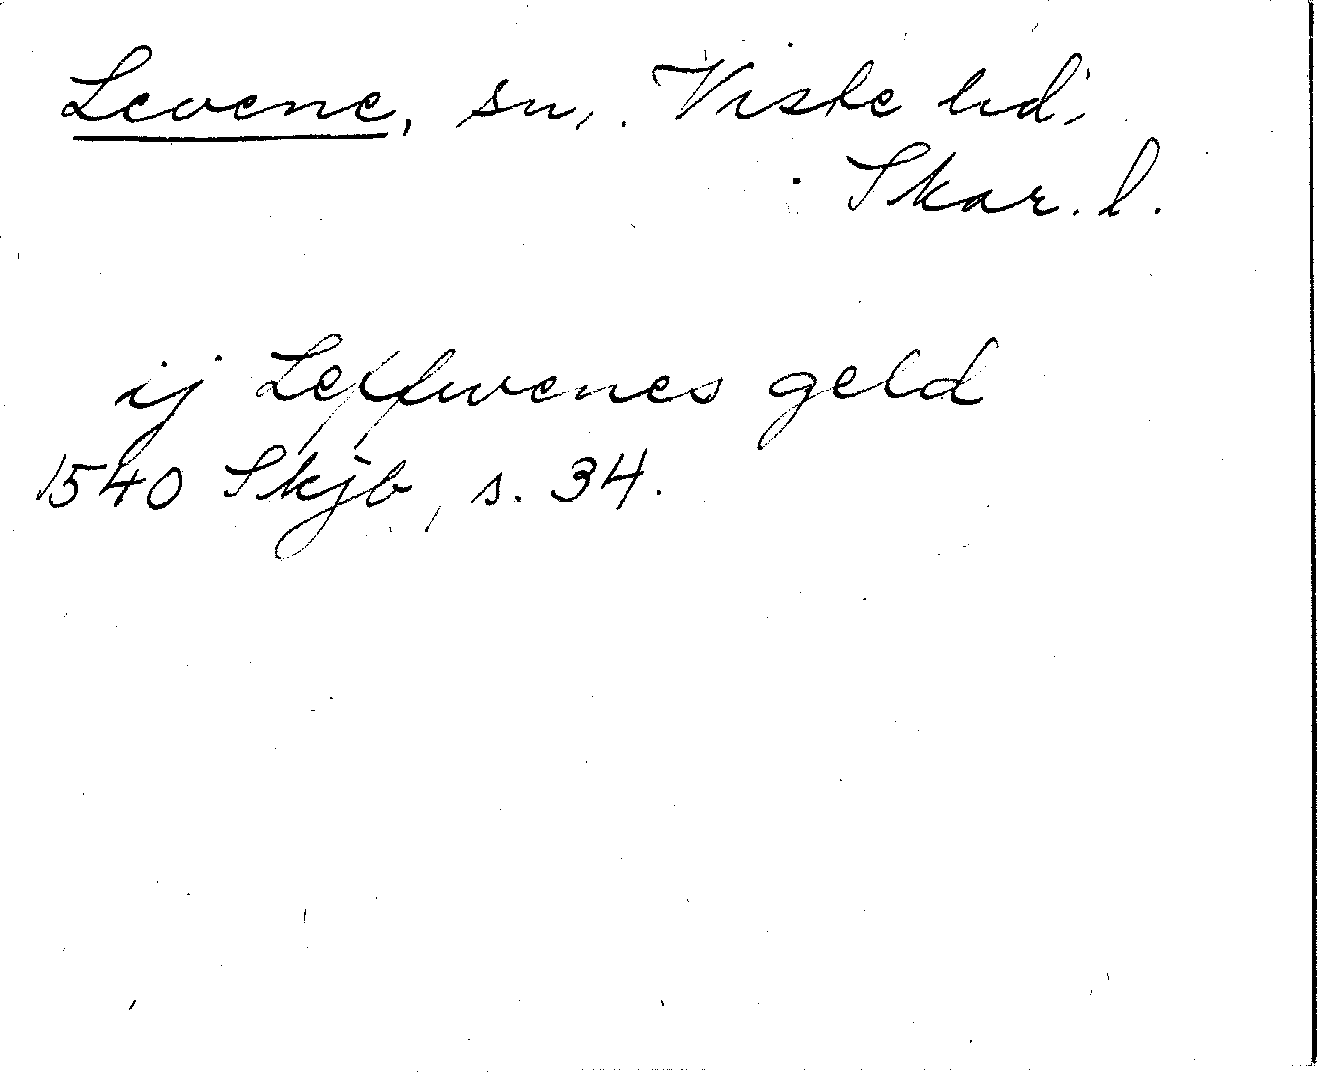 Levene, sn,. Viske hd,
Skar. l.
ij Leffwenes geld
1540 Skjb, s. 34.